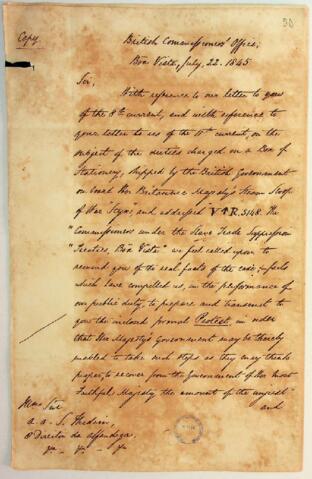 Copy
50
British Commissioners' Office,
Bôa Vista, July, 22. 1845
Sir,
With reference to our letter to you
of the 8th current, and with reference to
your letter to us of the 11th current, on the
subject of the duties charged on a Box of
Stationery, shipped by the British Government
on board Her Britannic Majesty's Steam Sloop
of War "Styx," and addressed "V ↑ R. 3148. The
"Commissioners under the Slave Trade Suppression
"Treaties, Bôa Vista" we feel called upon to
remind you of the real facts of the case; facts
which have compelled us, in the performance of
our public duty, to prepare and transmit to
you the inclosed formal Protest, in order
that Her Majesty's Government may be thereby
enabled to take such steps as they may think
proper to recover from the Government of Her Most
Faithful Majesty the amount of the unjust
and
Illmo Snr
a. a. S.
o Director da Alfandega,